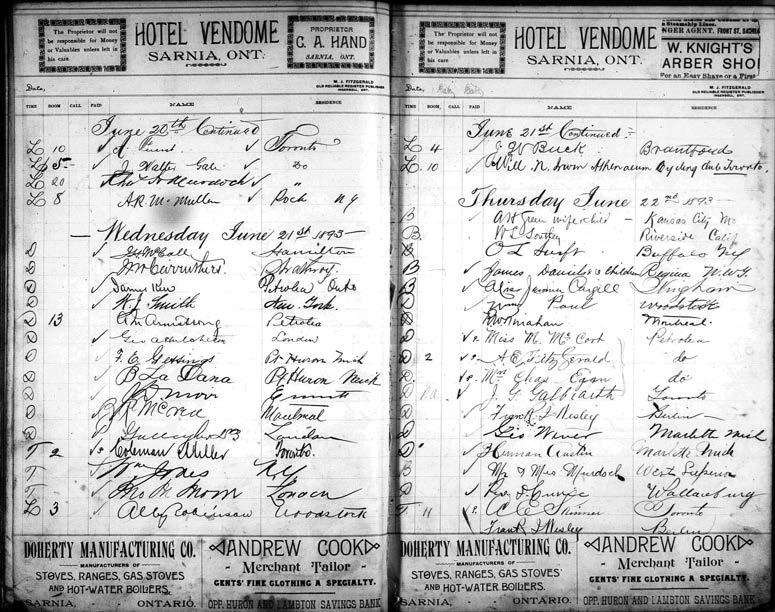 The Proprietor will not be responsible for Money or Valuables unless left in his care
HOTEL VENDOME
SARNIA, ONT.
PROPRIETOR
C. A. HAND
SARNIA, ONT.
Date,
M. J. FITZGERALD
OLD RELIABLE REGISTER PUBLISHER
INGERSOLL, ONT.
TIME ROOM CALL PAID NAME RESIDENCE
June 20th Continued
L 10 Toronto
L 5 J. Walter Gale Do
L 20 Murdoch "
L 8 A.R. McMullen Rock NY
Wednesday June 21st 1893
D McCall Hamilton
D Carruthers Strathroy
D James Kerr Petrolea Ont
D Smith New York
D 13 Armstrong Petrolea
D Geo London
D F. E. Gettings Pt Huron Mich
D B La Dana Pt Huron Mich
D Emmett
D McNea Montreal
D Gallagher London
T 2 Coleman Miller Toronto
T Wm Jones N.Y.
T London
L 3 Robinson Woodstock
DOHERTY MANUFACTURING CO.
MANUFACTURERS OF
STOVES, RANGES, GAS STOVES
AND HOT-WATER BOILERS.
SARNIA, ONTARIO.
ANDREW COOK
Merchant Tailor
GENTS' FINE CLOTHING A SPECIALTY.
OPP. HURON AND LAMBTON SAVINGS BANK
The Proprietor will not be responsible for Money or Valuables unless left in his care
HOTEL VENDOME
SARNIA, ONT.
Steamship Lines.
NGER AGENT. FRONT ST. SARNIA
W. KNIGHT'S
ARBER SHO
For an Easy Shave or a First
Date,
M. J. FITZGERALD
OLD RELIABLE REGISTER PUBLISHER
INGERSOLL, ONT.
TIME ROOM CALL PAID NAME RESIDENCE
June 21st Continued
L 4 Buck Brantford
L 10 Will N. Irwin Athenaeum Cycling Club Toronto
Thursday June 22nd 1893
B wife & child Kansas City Mo
B W L Riverside Calif
D O L Swift Buffalo NY
B James Daniels & Children Regina N.W.T.
B Miss Cargill Wingham
D Paul Woodstock
D Montreal
D Miss M. McCort Petrolea
D 2 A E Fitzgerald do
D Mrs Chas Egan do
D J. F Galbraith Toronto
D Frank J Nesley Berlin
D Geo Wever Marlette Mich
D Herman Austin Marlette Mich
B Mr & Mrs Murdock West Superior
D Rev D. Currie Wallaceburg
T 11 Skinner Toronto
Frank J Nesley Berlin
DOHERTY MANUFACTURING CO.
MANUFACTURERS OF
STOVES, RANGES, GAS STOVES
AND HOT-WATER BOILERS.
SARNIA, ONTARIO.
ANDREW COOK
Merchant Tailor
GENTS' FINE CLOTHING A SPECIALTY.
OPP. HURON AND LAMBTON SAVINGS BANK